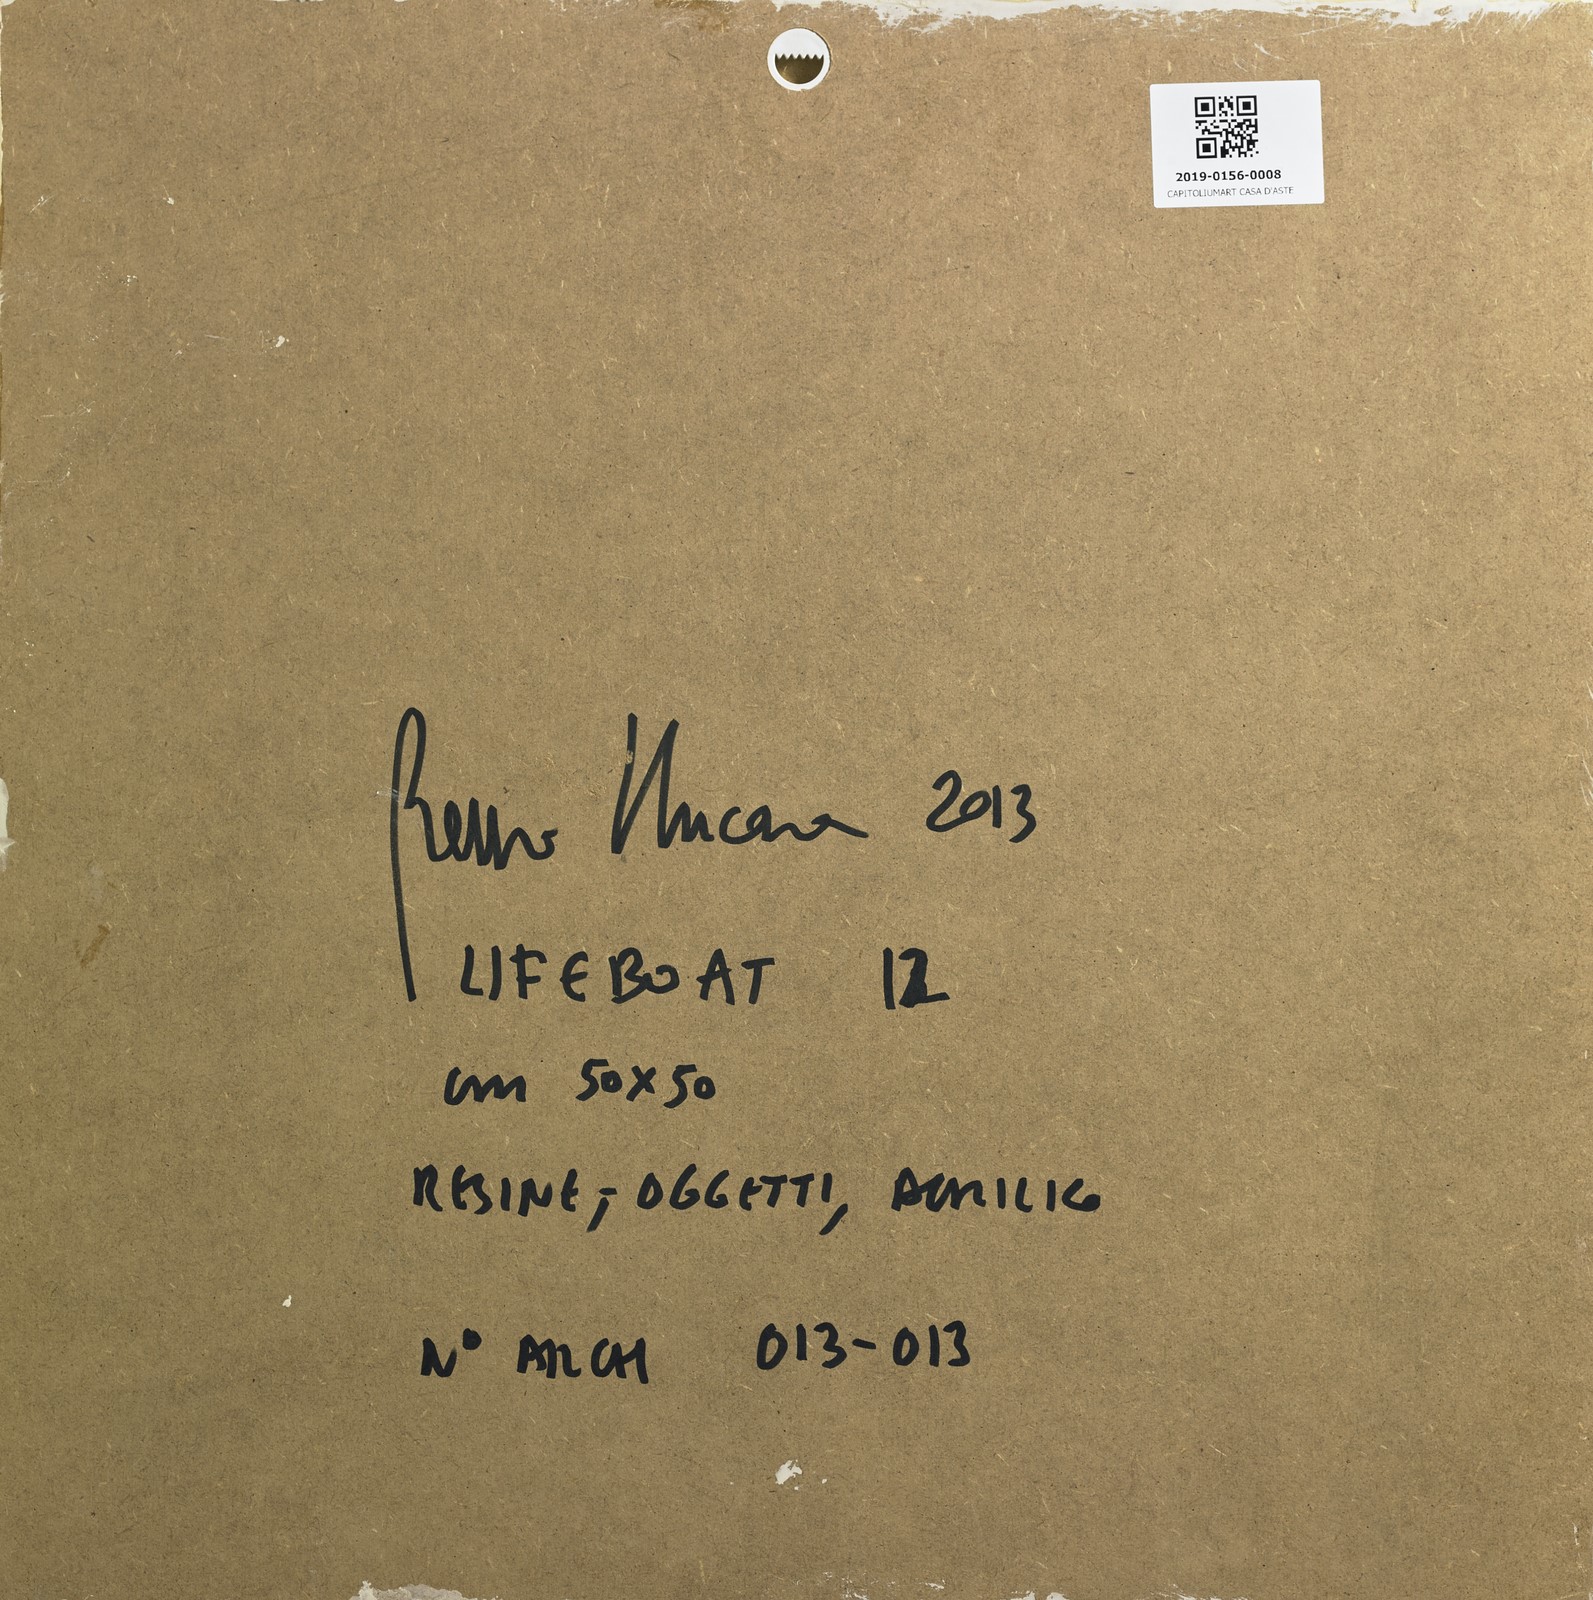 2019-0156-0008
CAPITOLIUMART CASA D'ASTE
2013
LIFEBOAT 12
cm 50x50
RESINE, OGGETTI, ACRILICO
N° ARCH 013-013